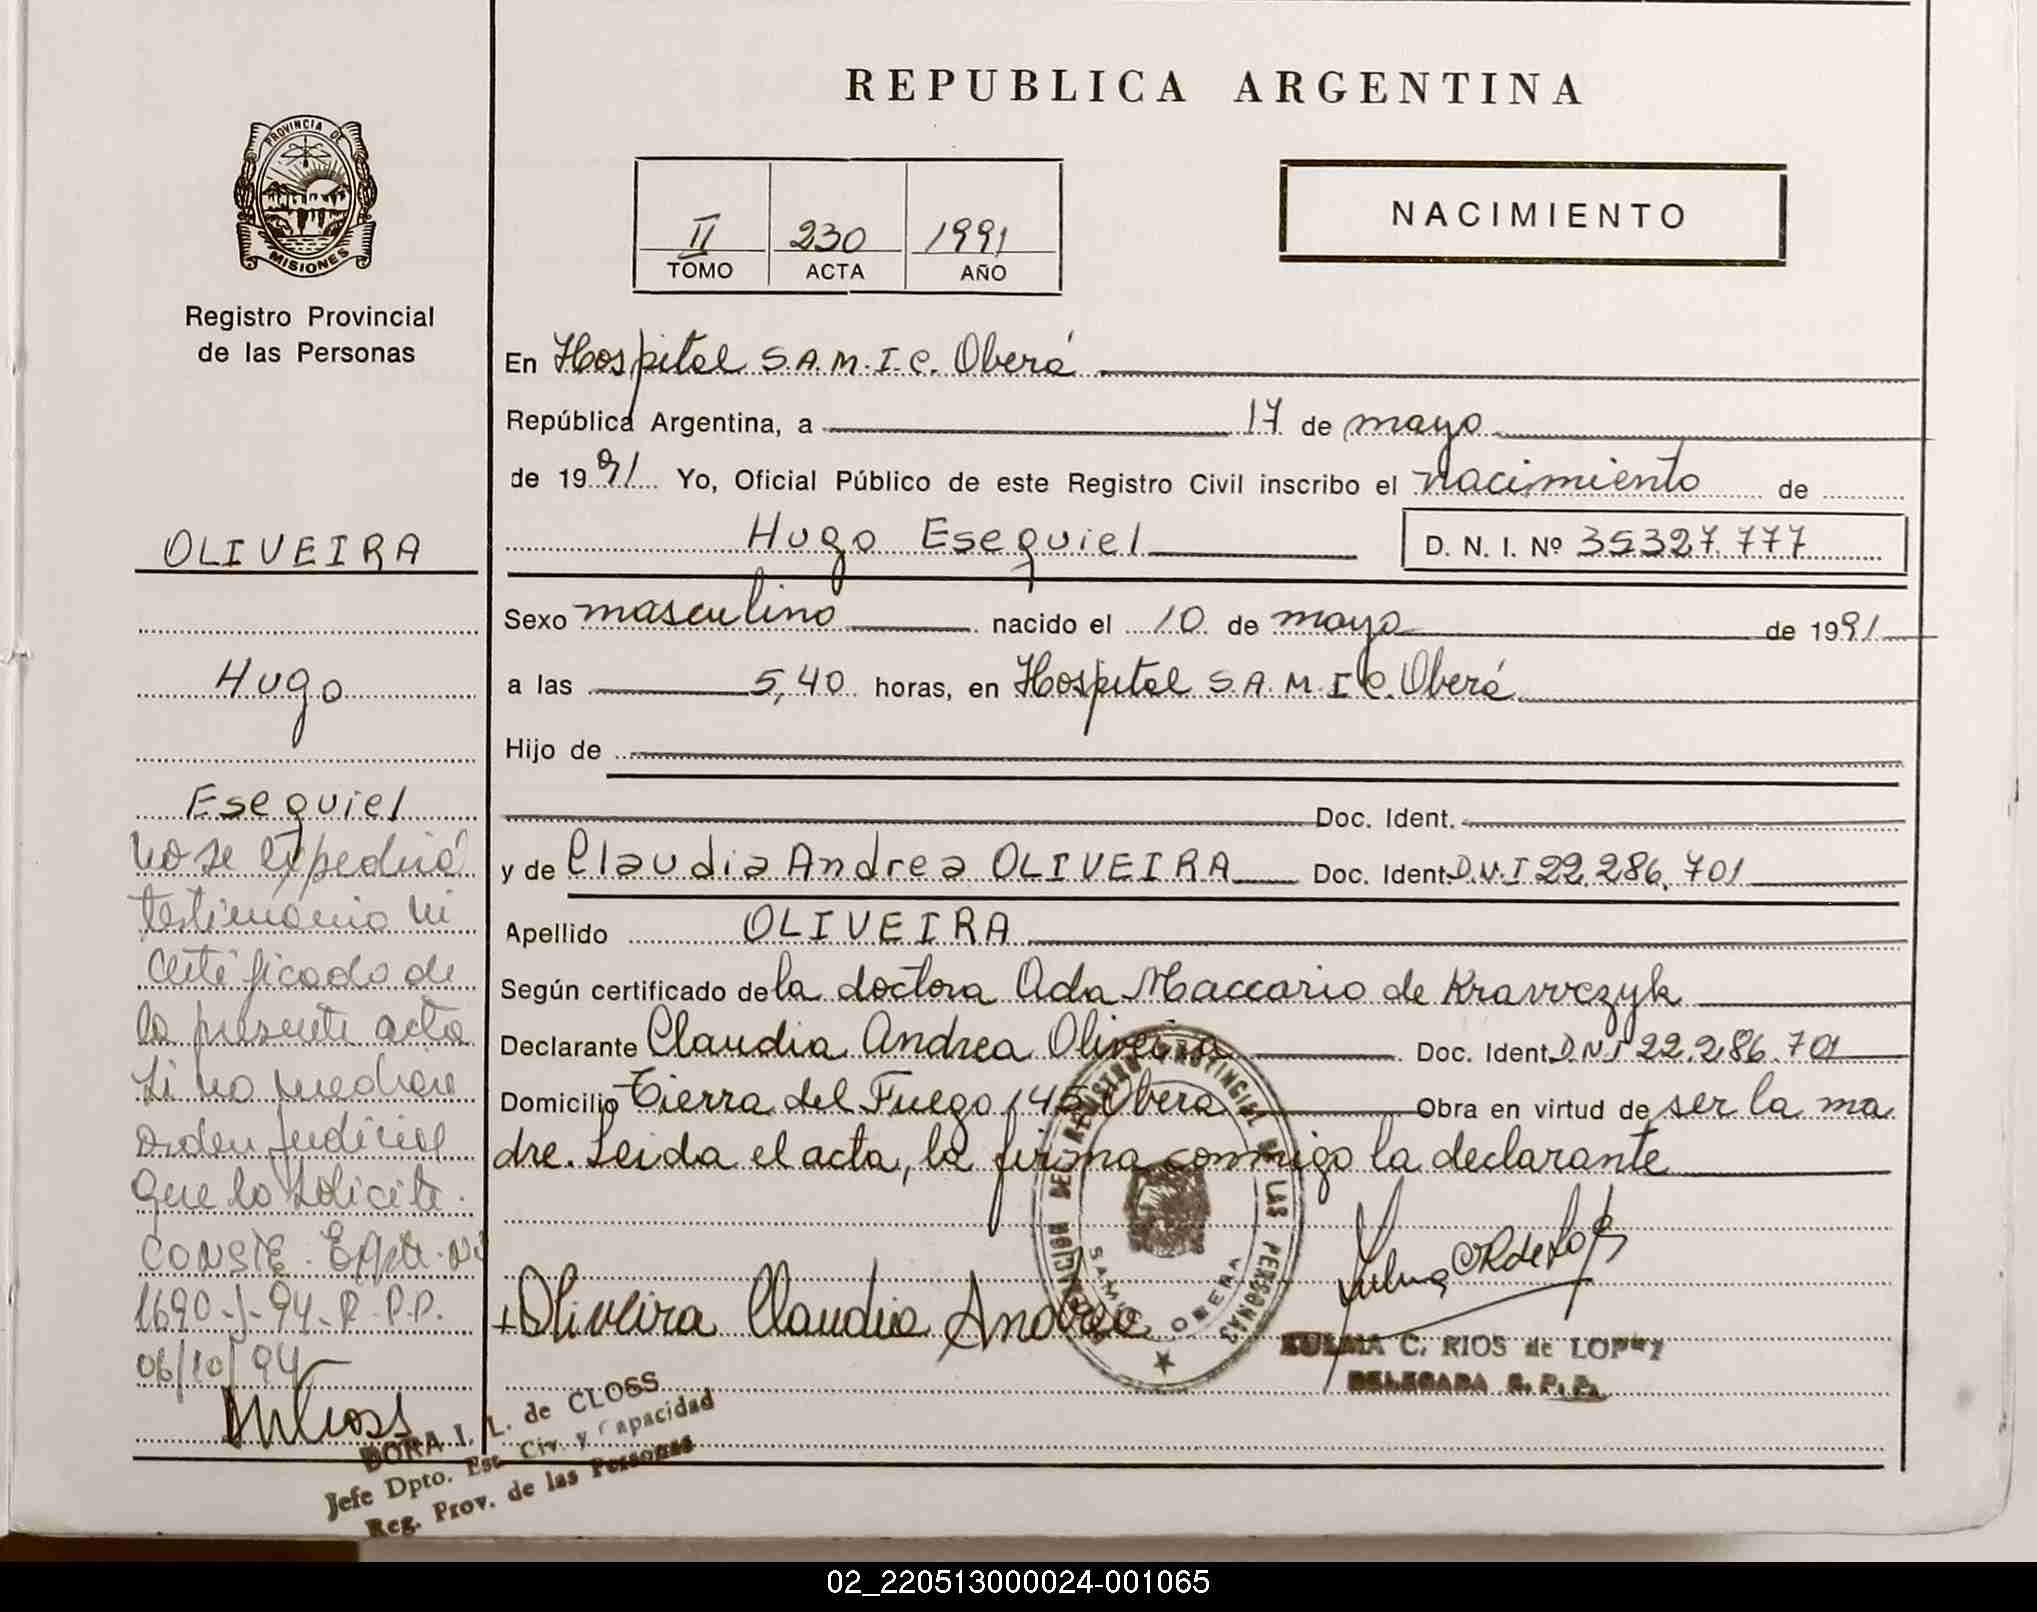 REPUBLICA ARGENTINA
PROVINCIA DE
MISIONES
Registro Provincial
de las Personas
II 230 1991
TOMO ACTA AÑO
NACIMIENTO
En Hospital S.A.M.I.C. Oberá
República Argentina, a 17 de mayo
de 1991 Yo, Oficial Público de este Registro Civil inscribo el nacimiento de
Hugo Esequiel D. N. I. Nº 35327.777
Sexo masculino nacido el 10 de mayo de 1991
a las 5,40 horas, en Hospital S.A.M.I.C. Oberá
Hijo de
Doc. Ident.
y de Claudia Andrea OLIVEIRA Doc. Ident. D.N.I 22.286.701
Apellido OLIVEIRA
Según certificado de la doctora Ada Maccario de Kravvczyk
Declarante Claudia Andrea Oliveira Doc. Ident. D.N.I 22.286.701
Domicilio Tierra del Fuego 145 Oberá Obra en virtud de ser la ma
dre. Leida el acta, la firma conmigo la declarante
Oliveira Claudia Andrea
ZULMA C. RIOS de LOPEZ
DELEGADA R. P. P.
REGISTRO PROVINCIAL DE LAS PERSONAS
SAMIC OBERA
OLIVEIRA
Hugo
Esequiel
No se expedirá
testimonio ni
certificado de
la presente acta
si no mediare
orden judicial
que lo solicite.
CONSTE. Expte. Nº
1690-J-94-R.P.P.
06/10/94
DORA I. L. de CLOSS
Jefe Dpto. Est. Civ. y Capacidad
Reg. Prov. de las Personas
02_220513000024-001065